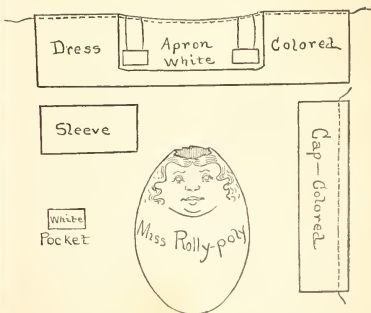 Dress Apron Colored
White
Sleeve
Cap-Colored
White
Pocket
Miss Rolly-poly